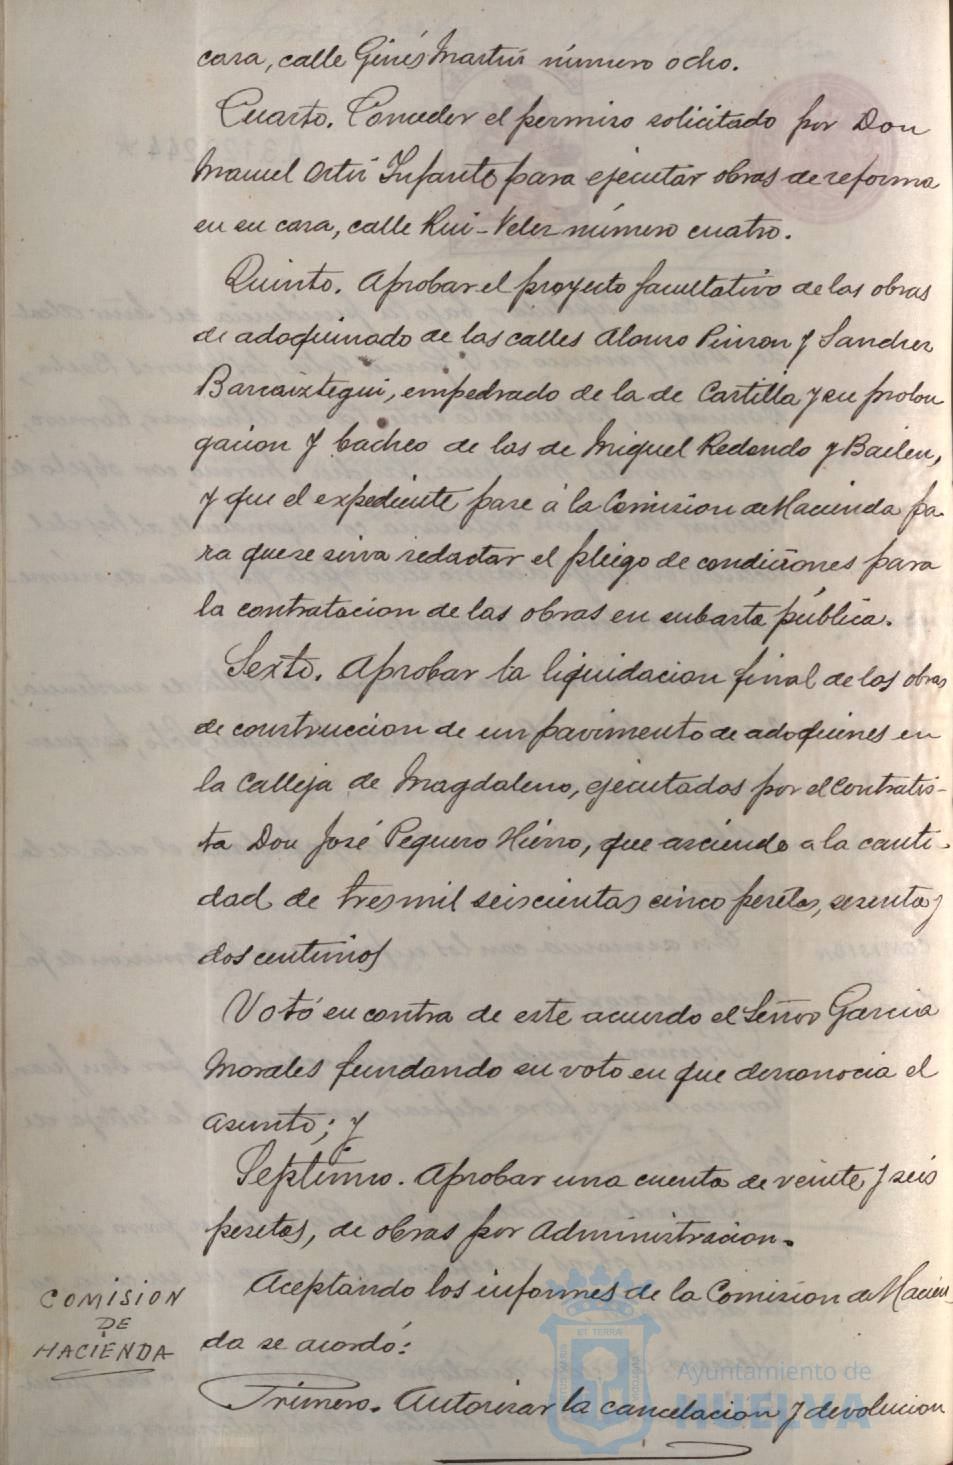 casa, calle Ginés Martín número ocho.
Cuarto. Conceder el permiso solicitado por Don
Manuel Ortíz Infante para ejecutar obras de reforma
en su casa, calle Rui-Velez número cuatro.
Quinto. Aprobar el proyecto facultativo de las obras
de adoquinado de las calles Alonso Pinzon y Sanchez
Barcaiztegui, empedrado de la de Castilla y su prolon
gacion y bacheo de las de Miguel Redondo y Bailen,
y que el expediente pase á la Comision de Hacienda pa
ra que se sirva redactar el pliego de condiciones para
la contratacion de las obras en subasta pública.
Sexto. Aprobar la liquidacion final de las obras
de construccion de un pavimento de adoquines en
la Calleja de Magdaleno, ejecutadas por el Contratis-
ta Don José Peguero Hierro, que asciende a la canti-
dad de tres mil seiscientas cinco pesetas, sesenta y
dos centimos
Votó en contra de este acuerdo el Señor Garcia
Morales fundando su voto en que desconocia el
asunto; y
Septimo. Aprobar una cuenta de veinte y seis
pesetas, de obras por Administracion.
COMISION
DE
HACIENDA
Aceptando los informes de la Comision de Hacien
da se acordó:
Primero. Autorizar la cancelacion y devolucion
Ayuntamiento de
HUELVA